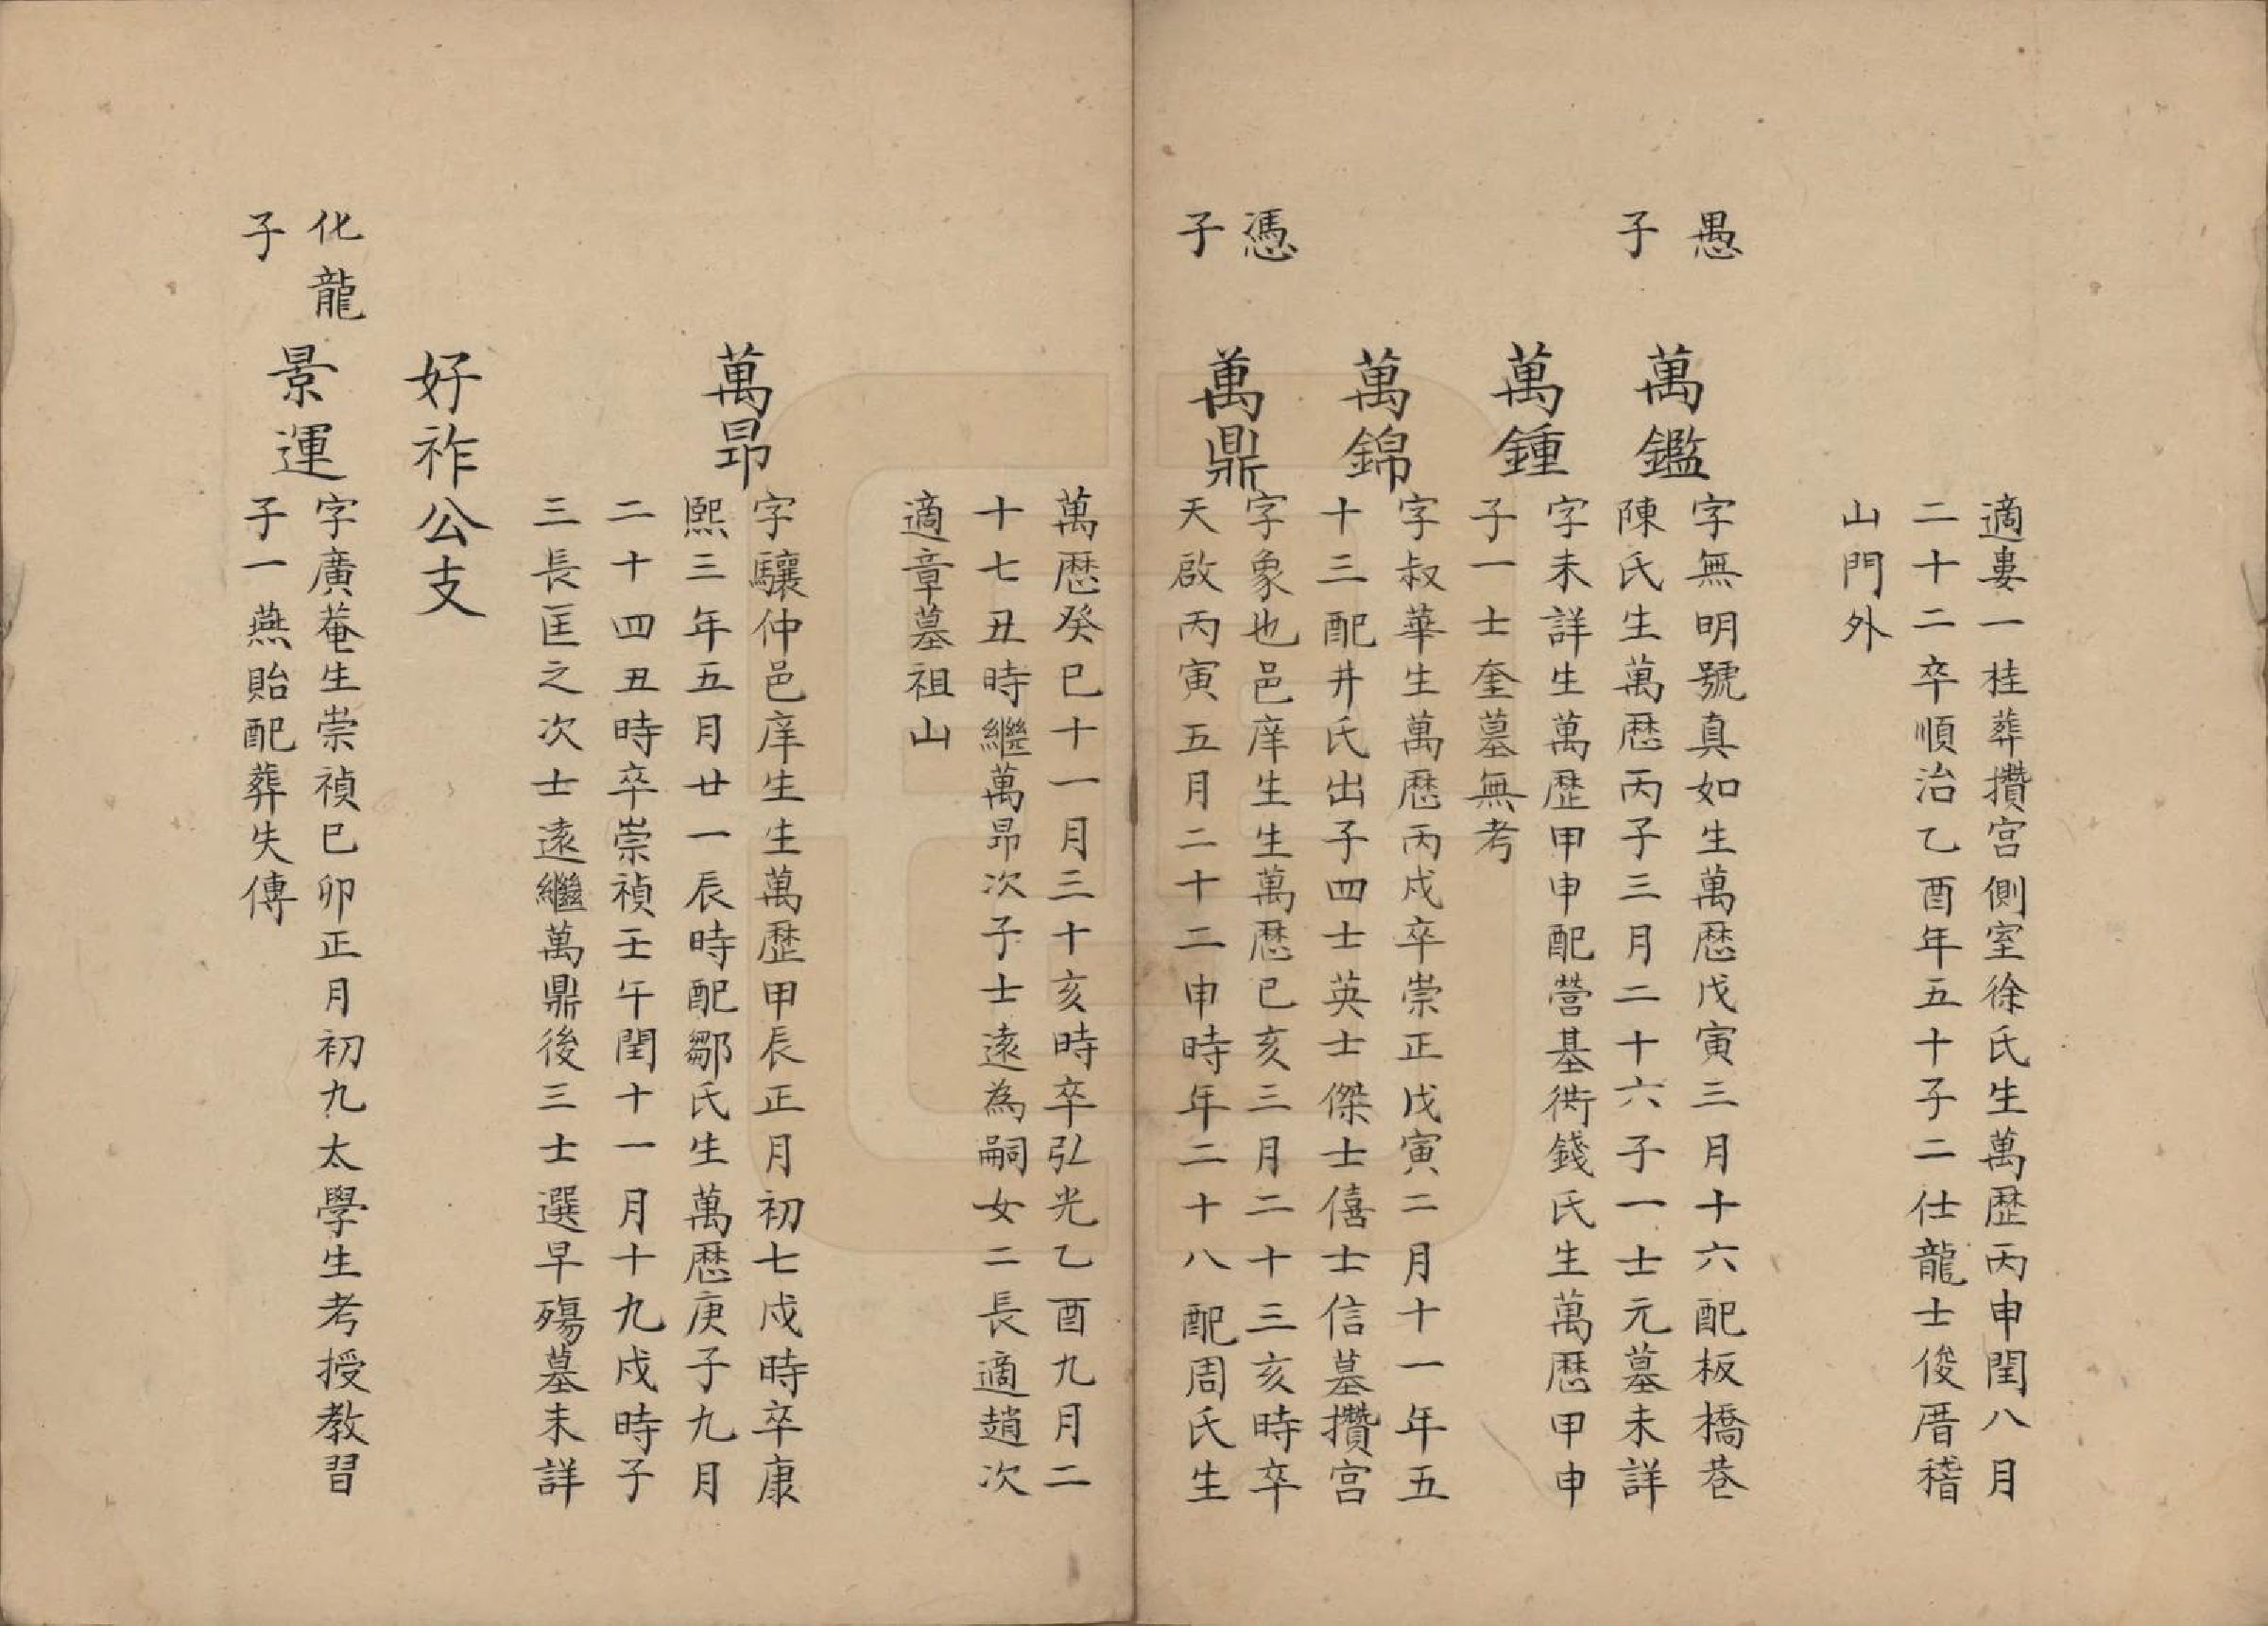 適婁一桂葬攢宫側室徐氏生萬歴丙申閏八月
二十二卒順治乙酉年五十子二仕龍士俊厝稽
山門外
愚
子
萬鑑
字無明號真如生萬厯戊寅三月十六配板橋巷
陳氏生萬厯丙子三月二十六子一士元墓未詳
萬鍾
字未詳生萬歴甲申配營基衖錢氏生萬厯甲申
子一士奎墓無考
萬錦
字叔華生萬厯丙戌卒崇正戊寅二月十一年五
十三配井氏出子四士英士傑士僖士信墓攢宫
憑
子
萬鼎
字象也邑庠生生萬厯己亥三月二十三亥時卒
天啟丙寅五月二十二申時年二十八配周氏生
萬厯癸巳十一月三十亥時卒弘光乙酉九月二
十七丑時繼萬昻次子士遠為嗣女二長適趙次
適章墓祖山
萬昻
字驤仲邑庠生生萬歴甲辰正月初七戌時卒康
熙三年五月廿一辰時配鄒氏生萬厯庚子九月
二十四丑時卒崇禎壬午閏十一月十九戌時子
三長匡之次士遠繼萬鼎後三士選早殤墓未詳
好祚公支
化龍
子
景運
字廣菴生崇禎己卯正月初九太學生考授教習
子一燕貽配葬失傳